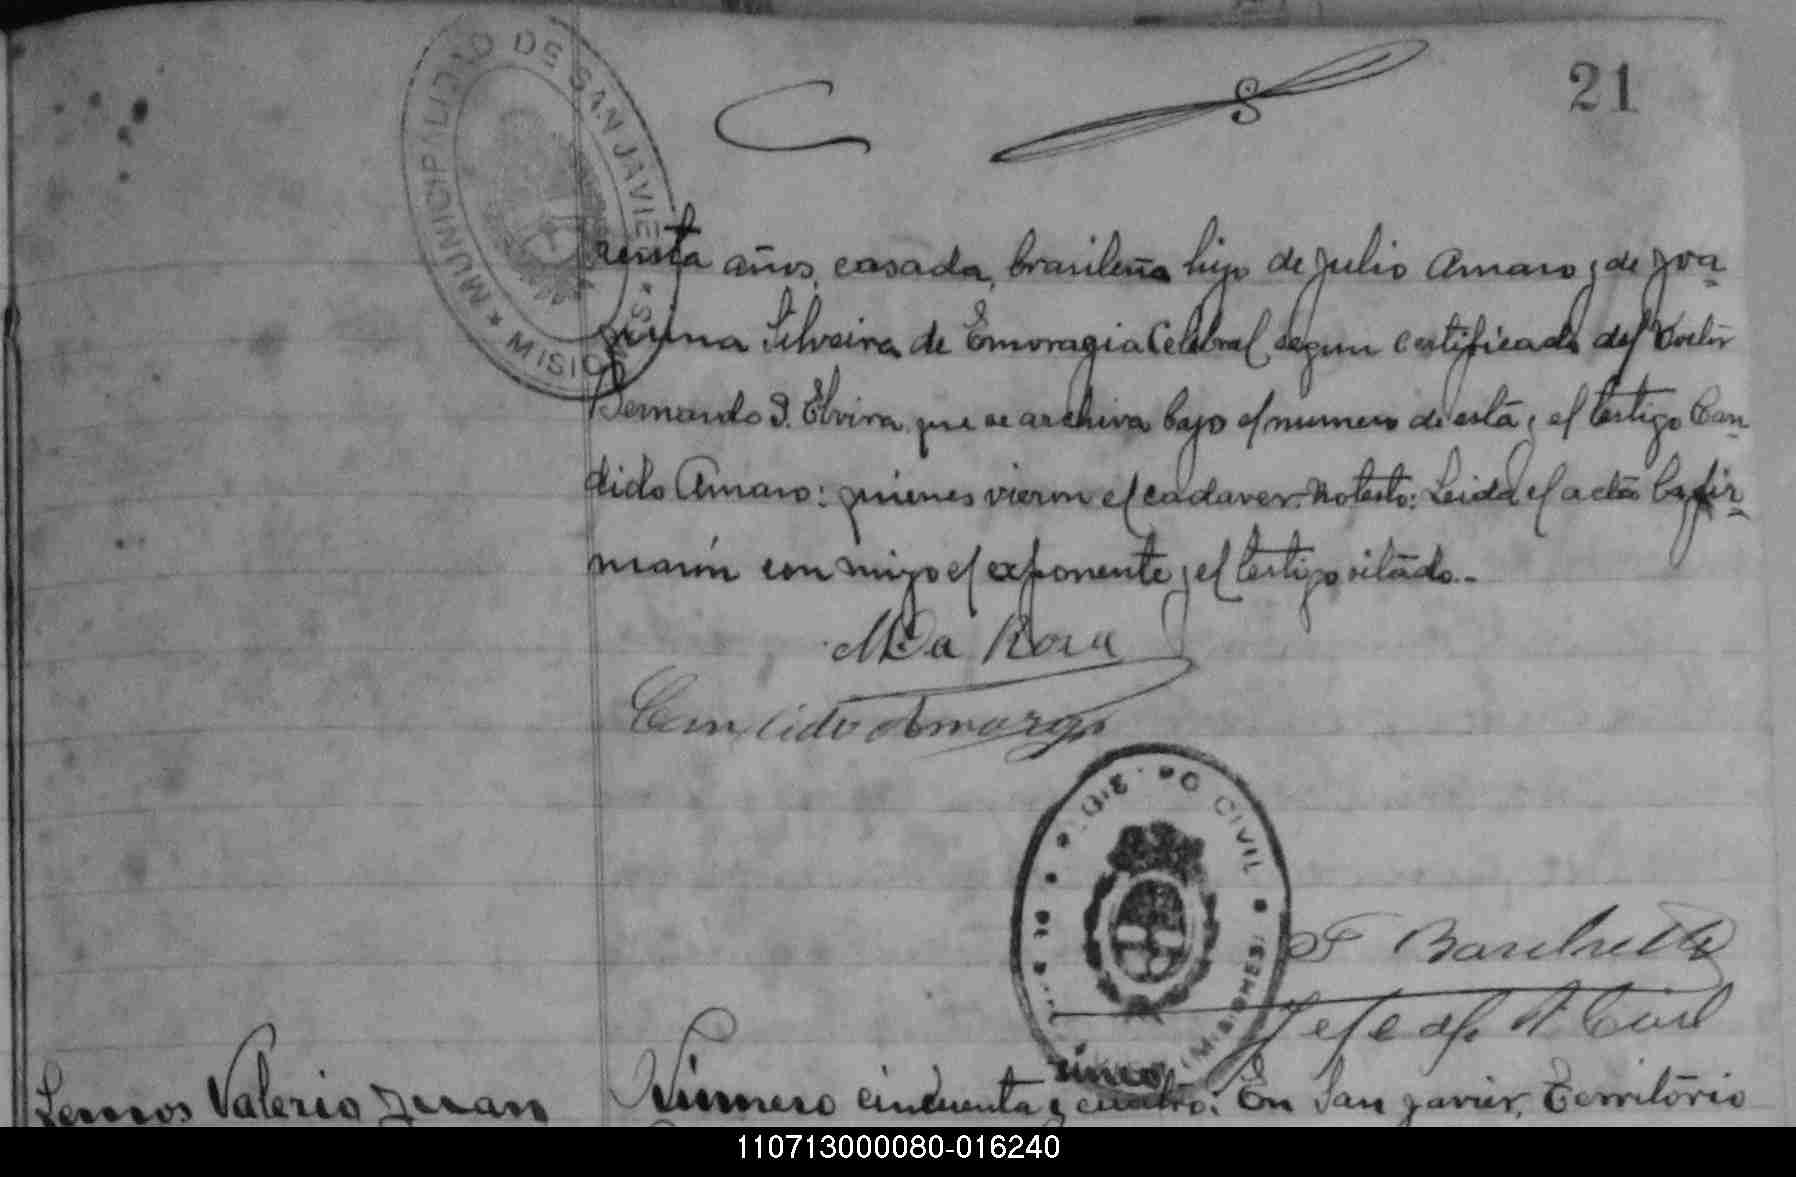 MUNICIPALIDAD DE SAN JAVIER * MISIONES *
21
renta años, casada, brasileña hijo de Julio Amaro y de Joa-
quina Silveira de Emoragia Celebral segun certificado del Doctor
Bernardo I. Elvira que se archiva bajo el numero de esta y el testigo Can-
dido Amaro: quienes vieron el cadaver. No testo: Leida el acta la fir-
maron con migo el exponente y el testigo citado.-
M Da Rosa
Candido Amaro
CIVIL
MISIONES
Jefe del R. Civil
Lemos Valerio Juan
cinco
Número cincuenta y cuatro: En San Javier, Territorio
110713000080-016240